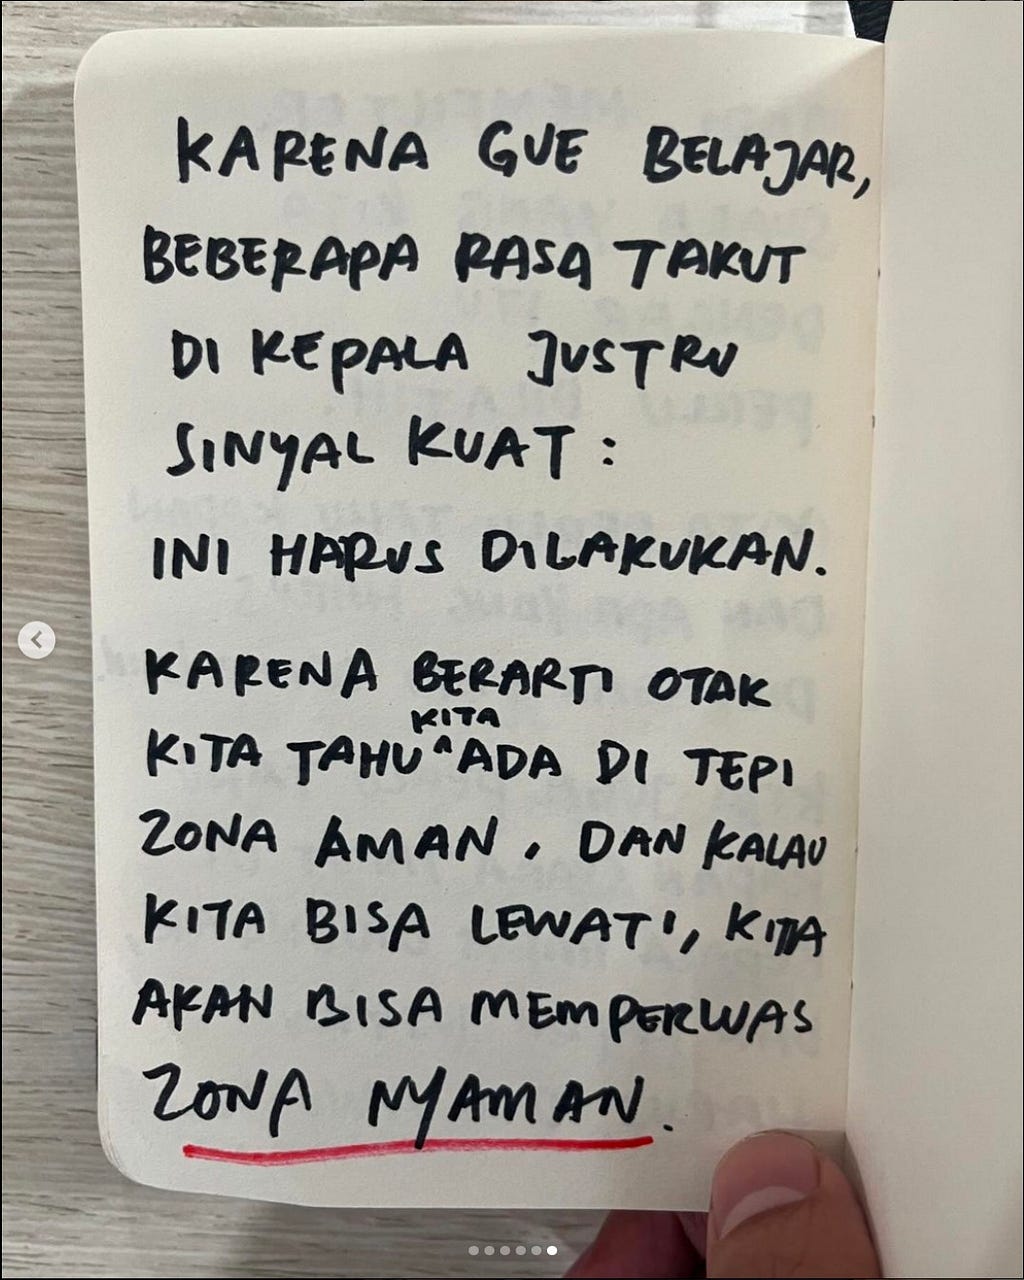 KARENA GUE BELAJAR,
BEBERAPA RASA TAKUT
DI KEPALA JUSTRU
SINYAL KUAT :
INI HARUS DILAKUKAN.
KARENA BERARTI OTAK
KITA
KITA TAHU ^ ADA DI TEPI
ZONA AMAN, DAN KALAU
KITA BISA LEWATI, KITA
AKAN BISA MEMPERLUAS
ZONA NYAMAN.